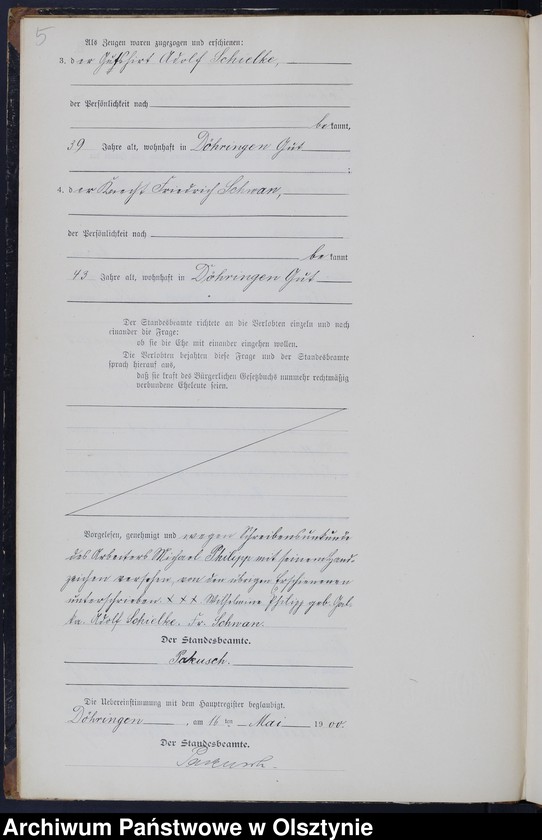 5
Als Zeugen waren zugezogen und erschienen:
3. der Gutshirt Adolf Schielke,
der Persönlichkeit nach
bekannt,
39 Jahre alt, wohnhaft in Döhringen Gut
;
4. der Knecht Friedrich Schwan,
der Persönlichkeit nach
bekannt
43 Jahre alt, wohnhaft in Döhringen Gut
Der Standesbeamte richtete an die Verlobten einzeln und nach
einander die Frage:
ob sie die Ehe mit einander eingehen wollen.
Die Verlobten bejahten diese Frage und der Standesbeamte
sprach hierauf aus,
daß sie kraft des Bürgerlichen Gesetzbuchs nunmehr rechtmäßig
verbundene Eheleute seien.
Vorgelesen, genehmigt und wegen Schreibensunkunde
des Arbeiters Michael Philipp mit seinem Hand-
zeichen versehen, von den übrigen Erschienenen
unterschrieben. XXX Wilhelmine Philipp geb.
Adolf Schielke. Fr. Schwan.
Der Standesbeamte.
Pakusch.
Die Uebereinstimmung mit dem Hauptregister beglaubigt.
Döhringen, am 16 ten Mai 1900.
Der Standesbeamte.
Pakusch.
Archiwum Państwowe w Olsztynie